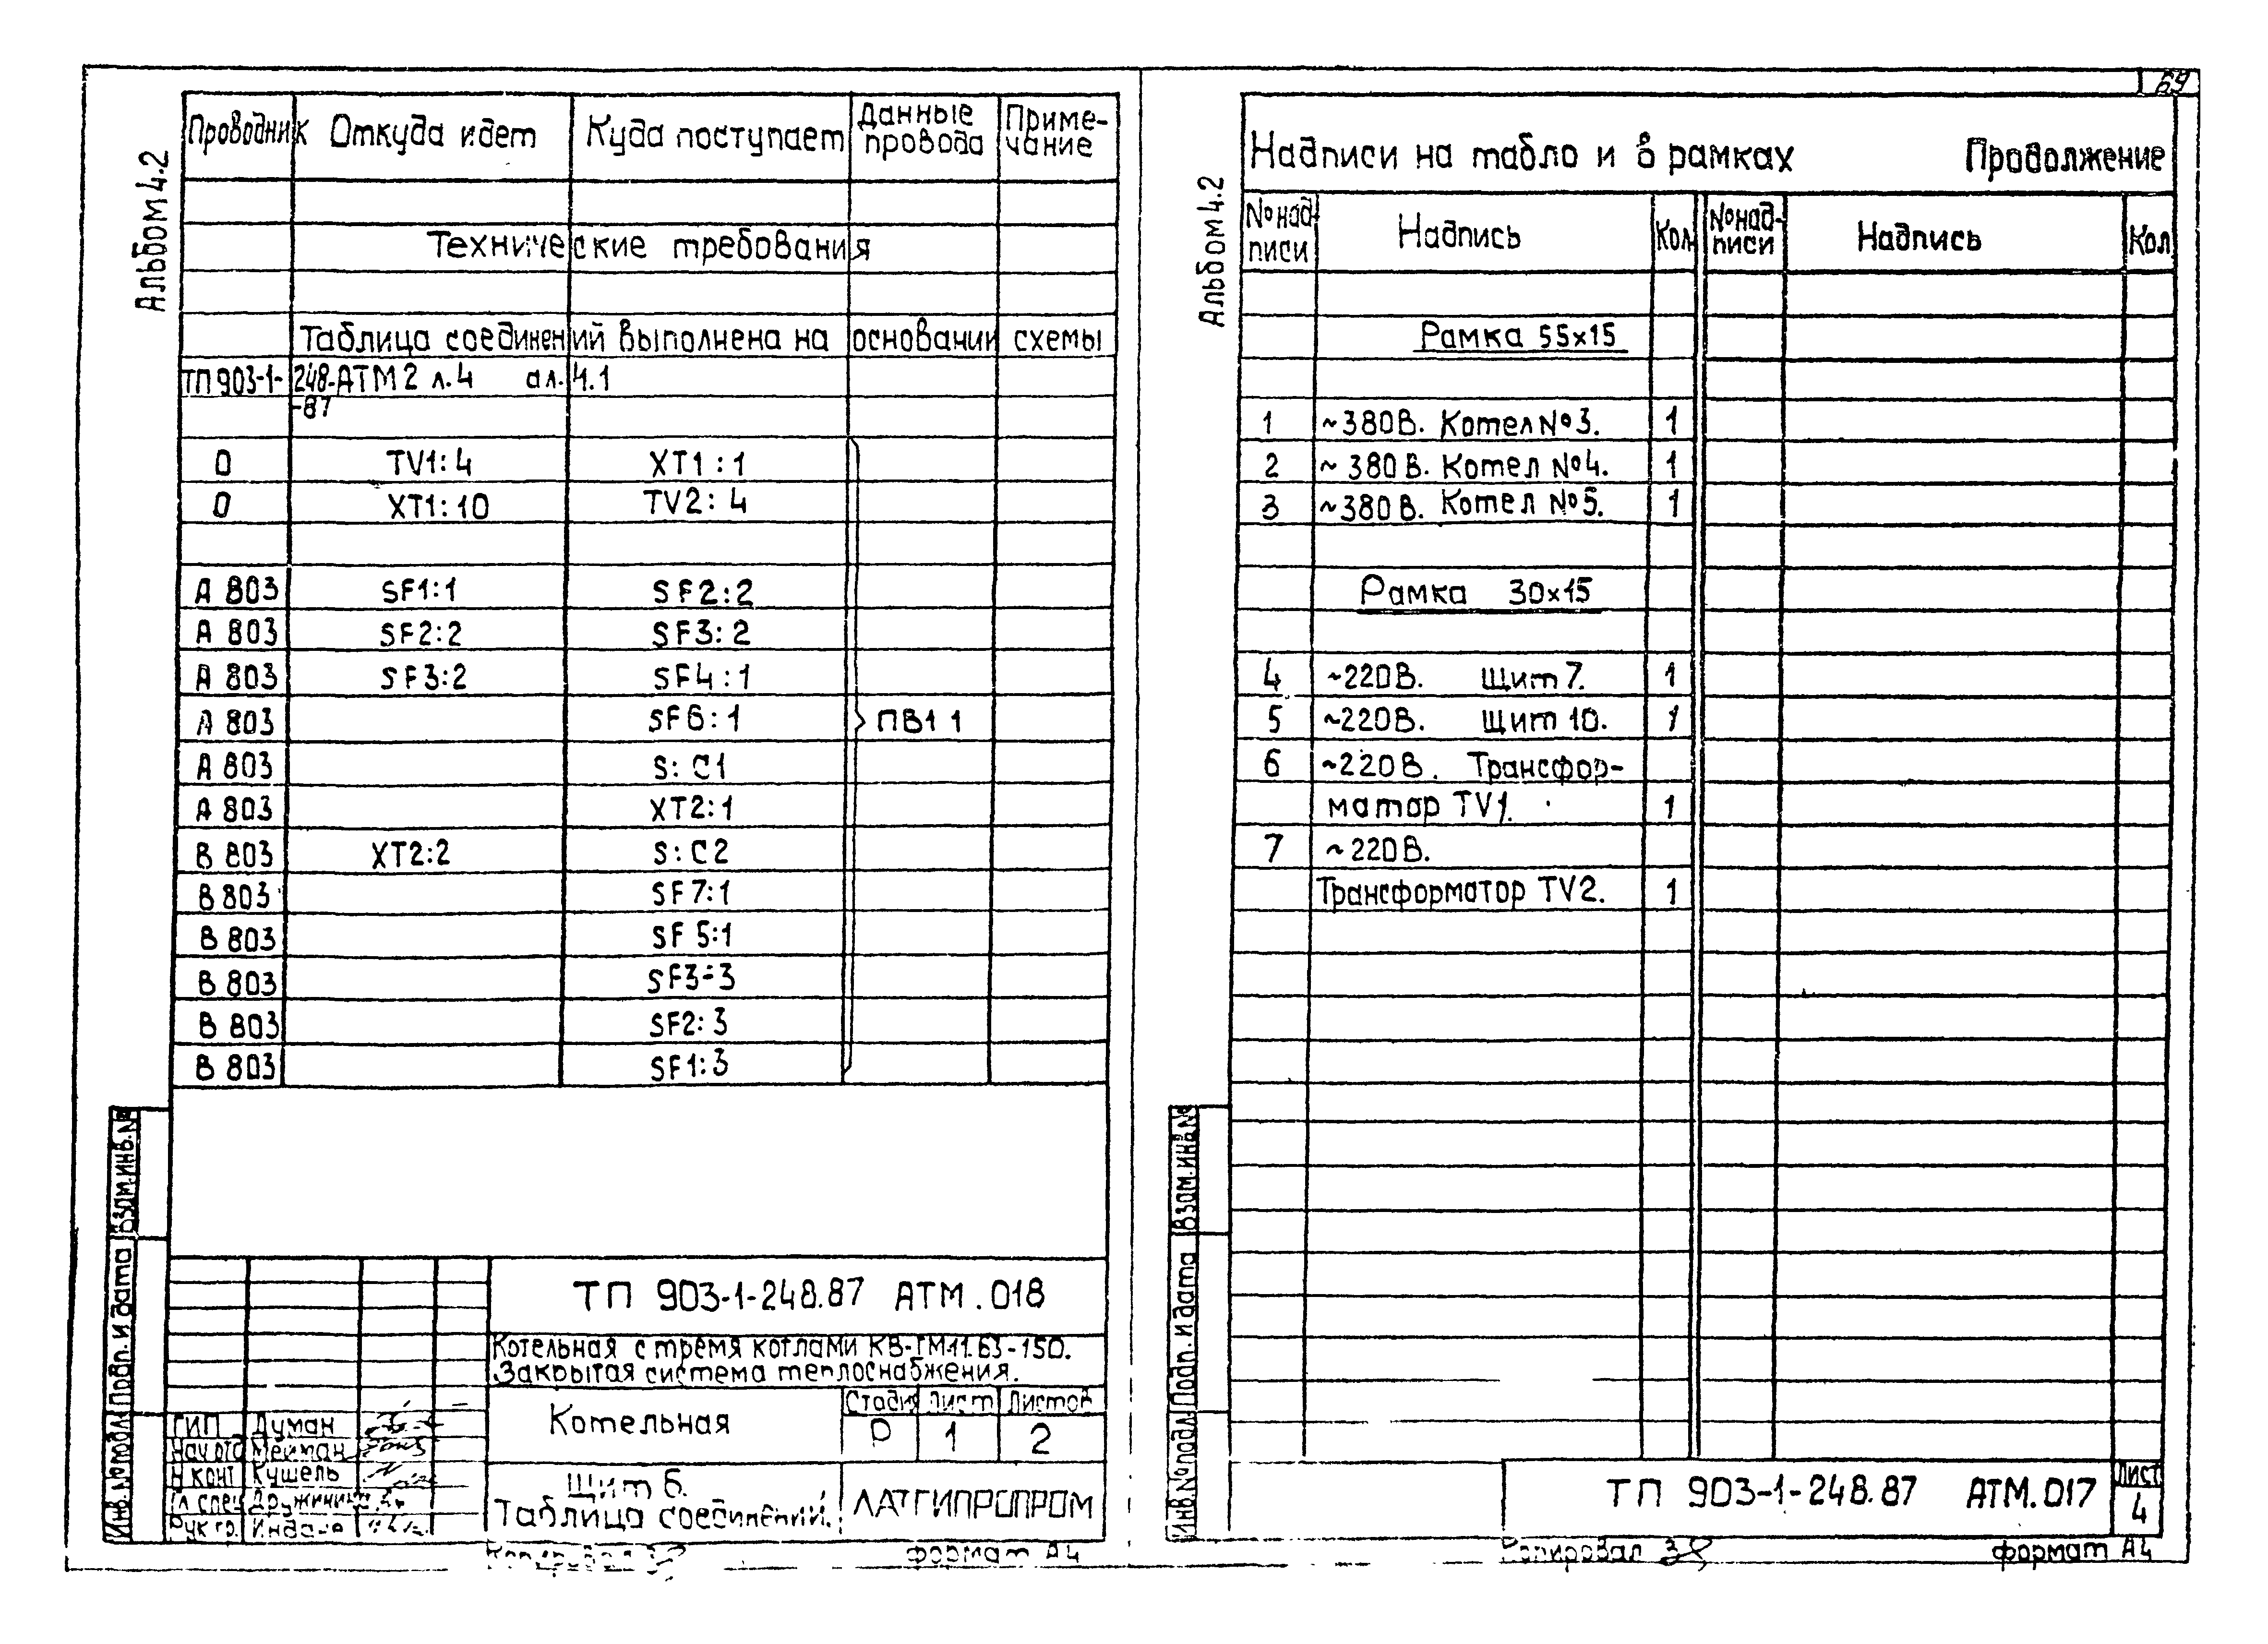 69
Альбом 4.2
Проводник Откуда идет Куда поступает Данные провода Примечание
Технические требования
Таблица соединений выполнена на основании схемы
ТП 903-1-248-АТМ2 л.4 ал.4.1
-87
0 TV1:4 XT1:1
0 XT1:10 TV2:4
А 803 SF1:1 SF2:2
А 803 SF2:2 SF3:2
А 803 SF3:2 SF4:1
А 803 SF6:1 ПВ1 1
А 803 S:C1
А 803 XT2:1
В 803 XT2:2 S:C2
В 803 SF7:1
В 803 SF5:1
В 803 SF3:3
В 803 SF2:3
В 803 SF1:3
Взам.инв.№
Подп. и дата
Инв.№подл.
ТП 903-1-248.87 АТМ.018
Котельная с тремя котлами КВ-ГМ-11.63-150.
Закрытая система теплоснабжения.
Котельная
Стадия Лист Листов
Р 1 2
ГИП Думан
Нач отд Мейман
Н конт Кушель
Гл.спец Дружинин
Рук гр.
Щит 6.
Таблица соединений.
ЛАТГИПРОПРОМ
Копировал
формат А4
Альбом 4.2
Надписи на табло и в рамках Продолжение
№ надписи Надпись Кол. № надписи Надпись Кол.
Рамка 55х15
1 ~380В. Котел №3. 1
2 ~380В. Котел №4. 1
3 ~380В. Котел №5. 1
Рамка 30х15
4 ~220В. Щит 7. 1
5 ~220В. Щит 10. 1
6 ~220В. Трансфор-
матор TV1. 1
7 ~220В.
Трансформатор TV2. 1
Взам.инв.№
Подп. и дата
Инв.№подл.
ТП 903-1-248.87 АТМ.017
Лист
4
Копировал
формат А4